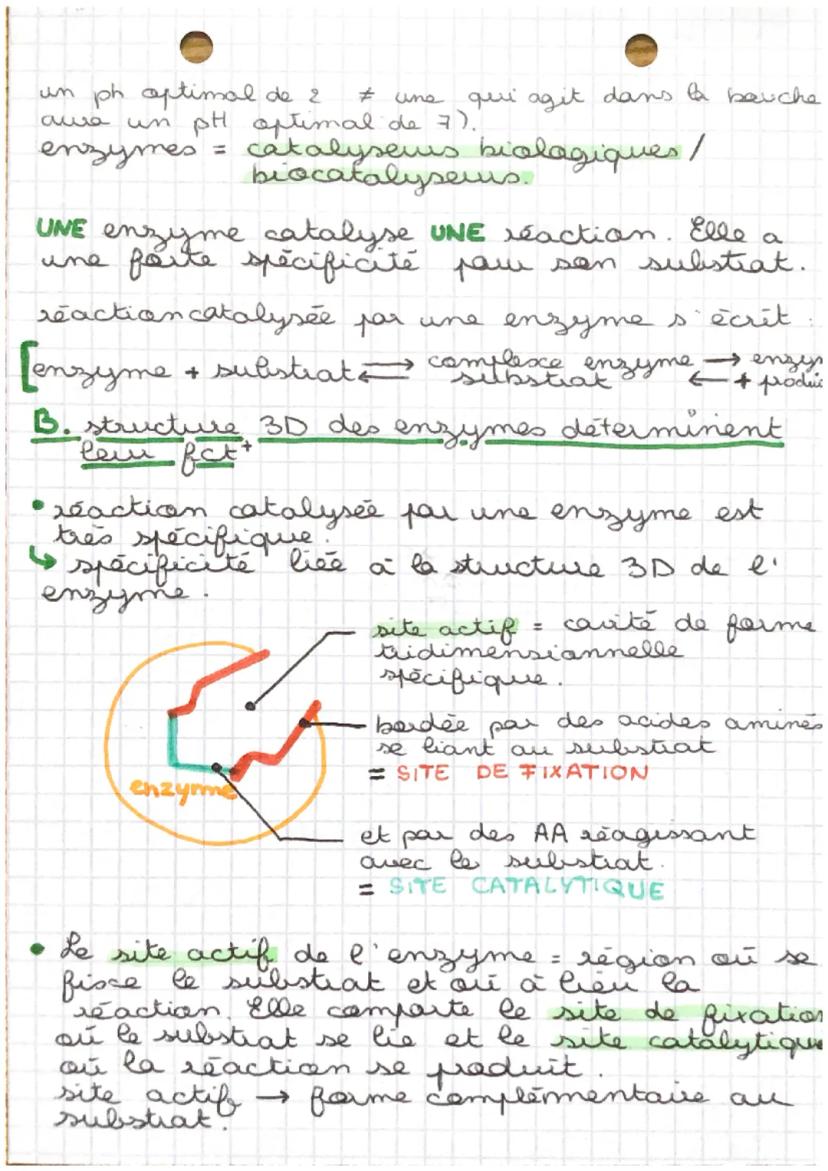 un ph optimal de 2 ≠ une qui agit dans la bouche
aura un pH optimal de 7).
enzymes = catalyseurs biologiques /
biocatalyseurs.
UNE enzyme catalyse UNE réaction. Elle a
une forte spécificité pour son substrat.
réaction catalysée par une enzyme s'écrit :
[enzyme + substrat ⇌ complexe enzyme substrat ⇌ enzy
+ produi
B. structure 3D des enzymes déterminent
leur fct+
• réaction catalysée par une enzyme est
très spécifique.
↳ spécificité liée à la structure 3D de l'
enzyme.
site actif = cavité de forme
tridimensionnelle
spécifique.
bordée par des acides aminés
se liant au substrat
= SITE DE FIXATION
enzyme
et par des AA réagissant
avec le substrat.
= SITE CATALYTIQUE
• Le site actif de l'enzyme = région où se
fixe le substrat et où à lieu la
réaction. Elle comporte le site de fixation
où le substrat se lie et le site catalytique
où la réaction se produit.
site actif → forme complémentaire au
substrat.